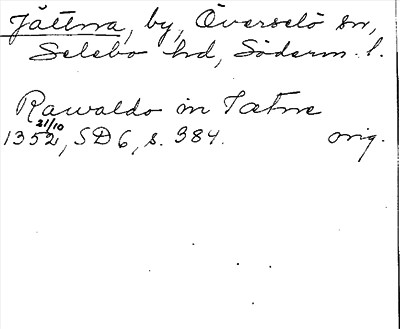 Jättna, by, Överselö sn,
Selebo hd, Söderm. l.
Rawaldo in Tætne
21/10
1352, SD 6, s. 384. orig.